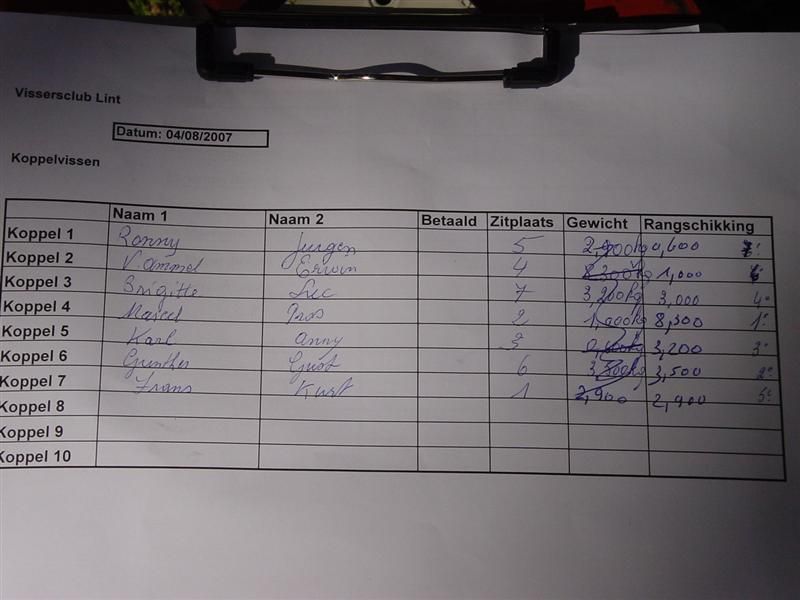 Vissersclub Lint
Datum: 04/08/2007
Koppelvissen
Naam 1 Naam 2 Betaald Zitplaats Gewicht Rangschikking
Koppel 1 Ronny Jurgen 5 0,600
Koppel 2 Erwin 4 1,000
Koppel 3 Brigitte Luc 7 3,000 4e
Koppel 4 Marcel 2 8,300 1e
Koppel 5 Karl Anny 3 3,200 3e
Koppel 6 Gunther Gust 6 3,500 2e
Koppel 7 Frans Kurt 1 2,900 2,900 5e
Koppel 8
Koppel 9
Koppel 10